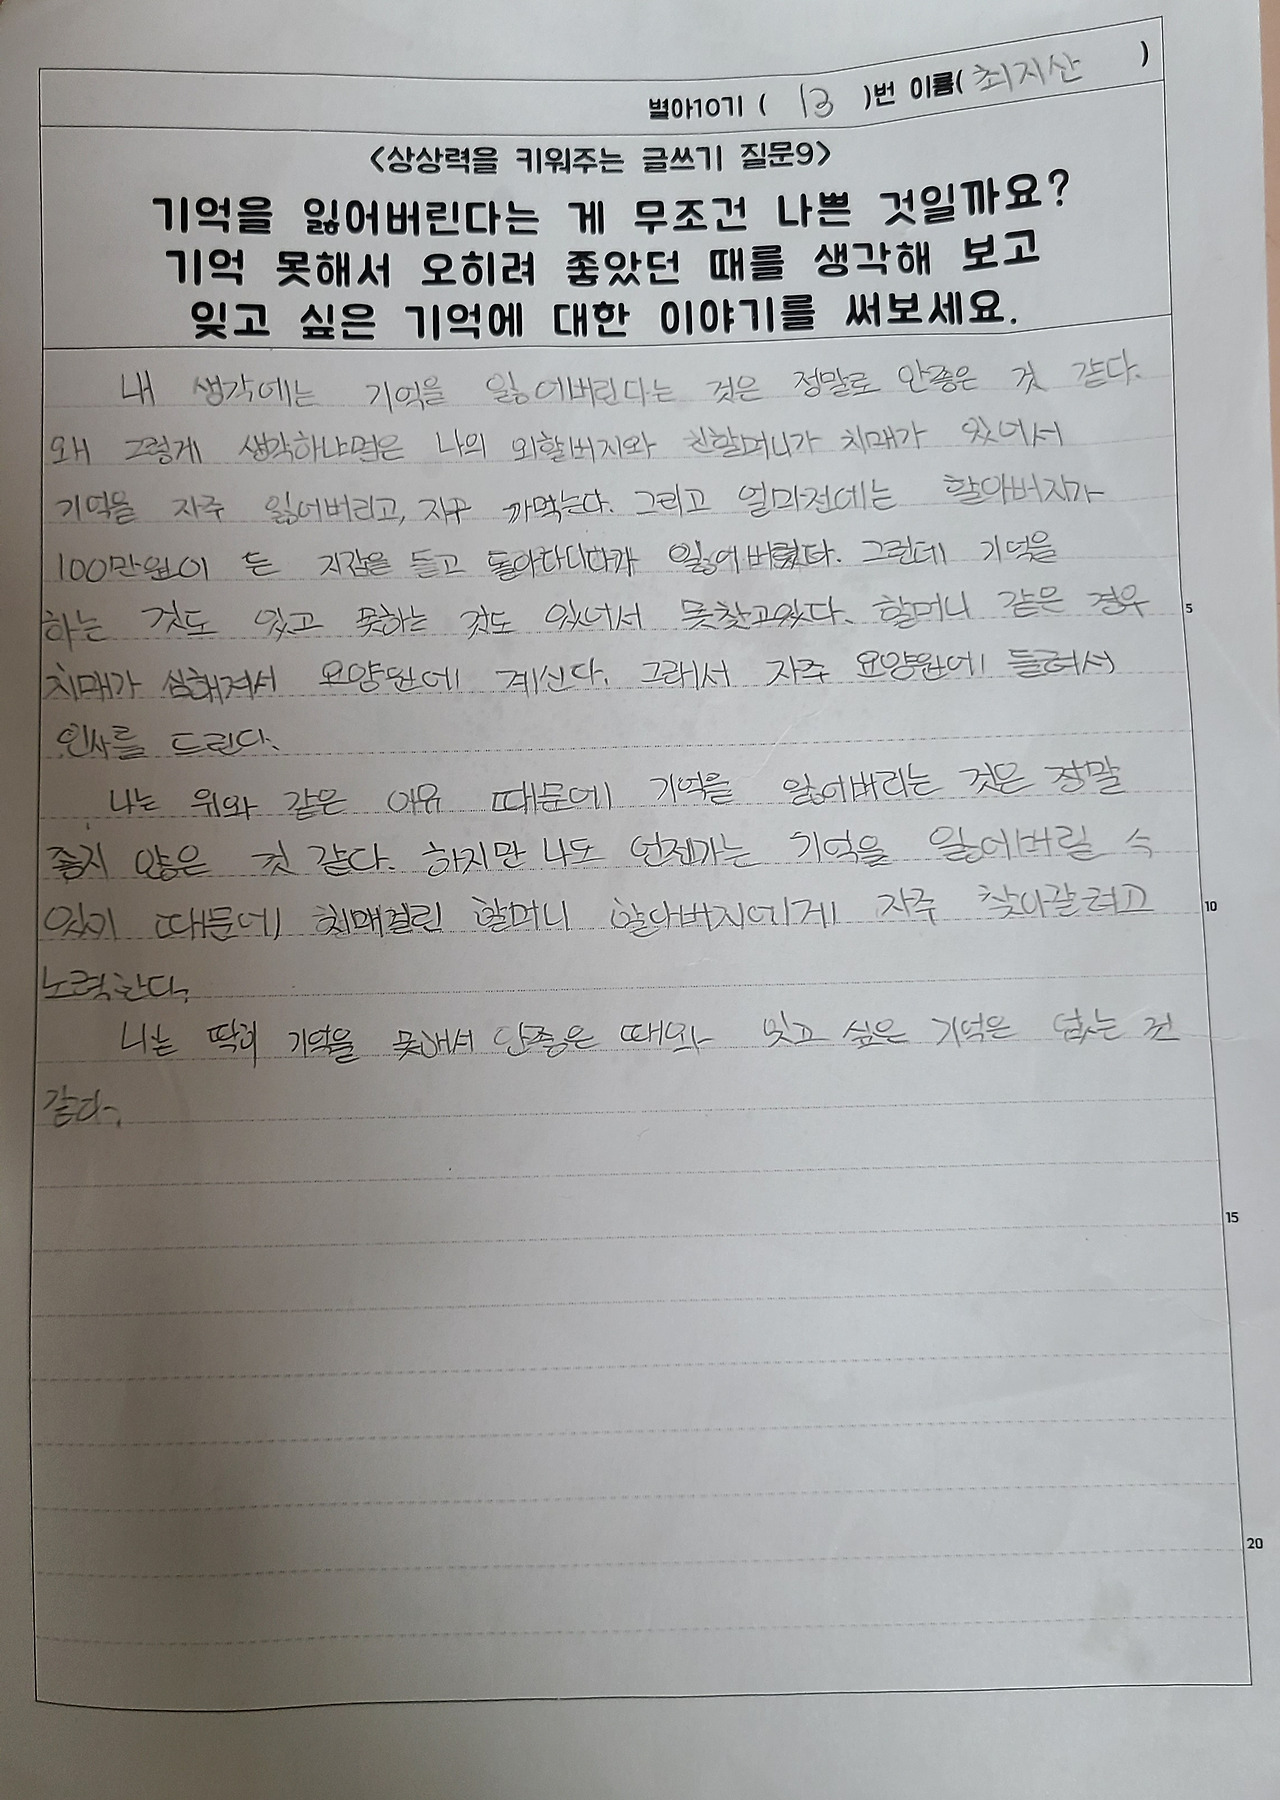 별아10기 ( 13 )번 이름( 최지산 )
<상상력을 키워주는 글쓰기 질문9>
기억을 잃어버린다는 게 무조건 나쁜 것일까요?
기억 못해서 오히려 좋았던 때를 생각해 보고
잊고 싶은 기억에 대한 이야기를 써보세요.
내 생각에는 기억을 잃어버린다는 것은 정말로 안좋은 것 같다.
왜 그렇게 생각하냐면은 나의 외할버지와 친할머니가 치매가 있어서
기억을 자주 잃어버리고, 자꾸 까먹는다. 그리고 얼마전에는 할아버지가
100만원이 든 지갑을 들고 돌아다니다가 잃어버렸다. 그런데 기억을
하는 것도 있고 못하는 것도 있어서 못찾고있다. 할머니 같은 경우 5
치매가 심해져서 요양원에 계신다. 그래서 자주 요양원에 들려서
인사를 드린다.
나는 위와 같은 이유 때문에 기억을 잃어버리는 것은 정말
좋지 않은 것 같다. 하지만 나도 언젠가는 기억을 잃어버릴 수
있기 때문에 치매걸린 할머니 할아버지에게 자주 찾아갈려고 10
노력한다.
나는 딱히 기억을 못해서 안좋은 때와 잊고 싶은 기억은 없는 것
같다.
15
20